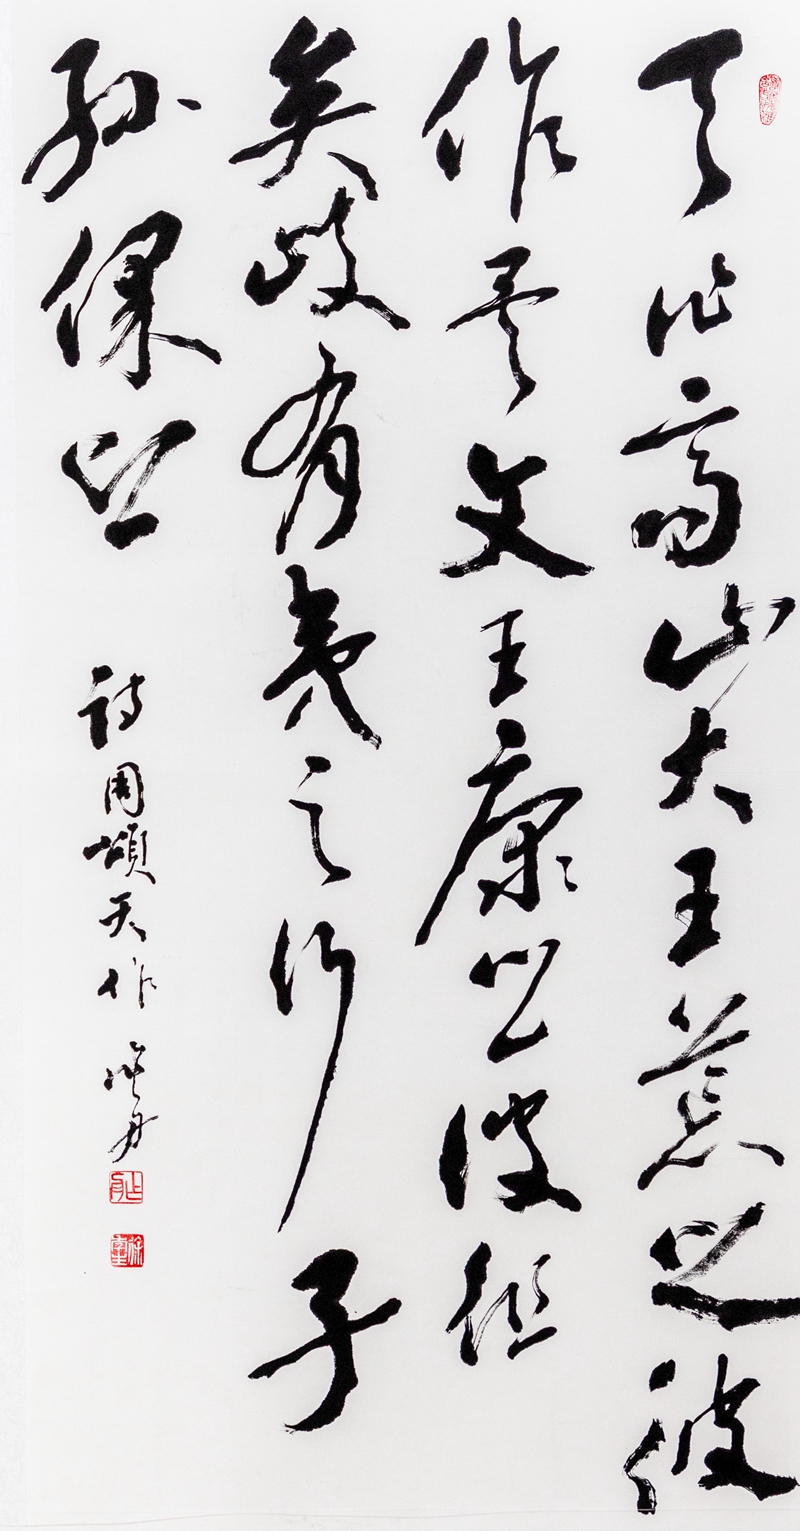 天作高山大王荒之彼
作矣文王康之彼徂
矣岐有夷之行子
孫保之
詩周頌天作